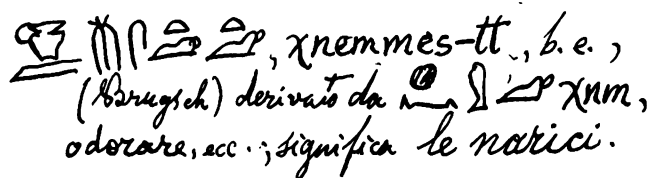 , χnemmes-tt, b. e.,
(Brugsch) derivato da χnm,
odorare, ecc.; significa le narici.